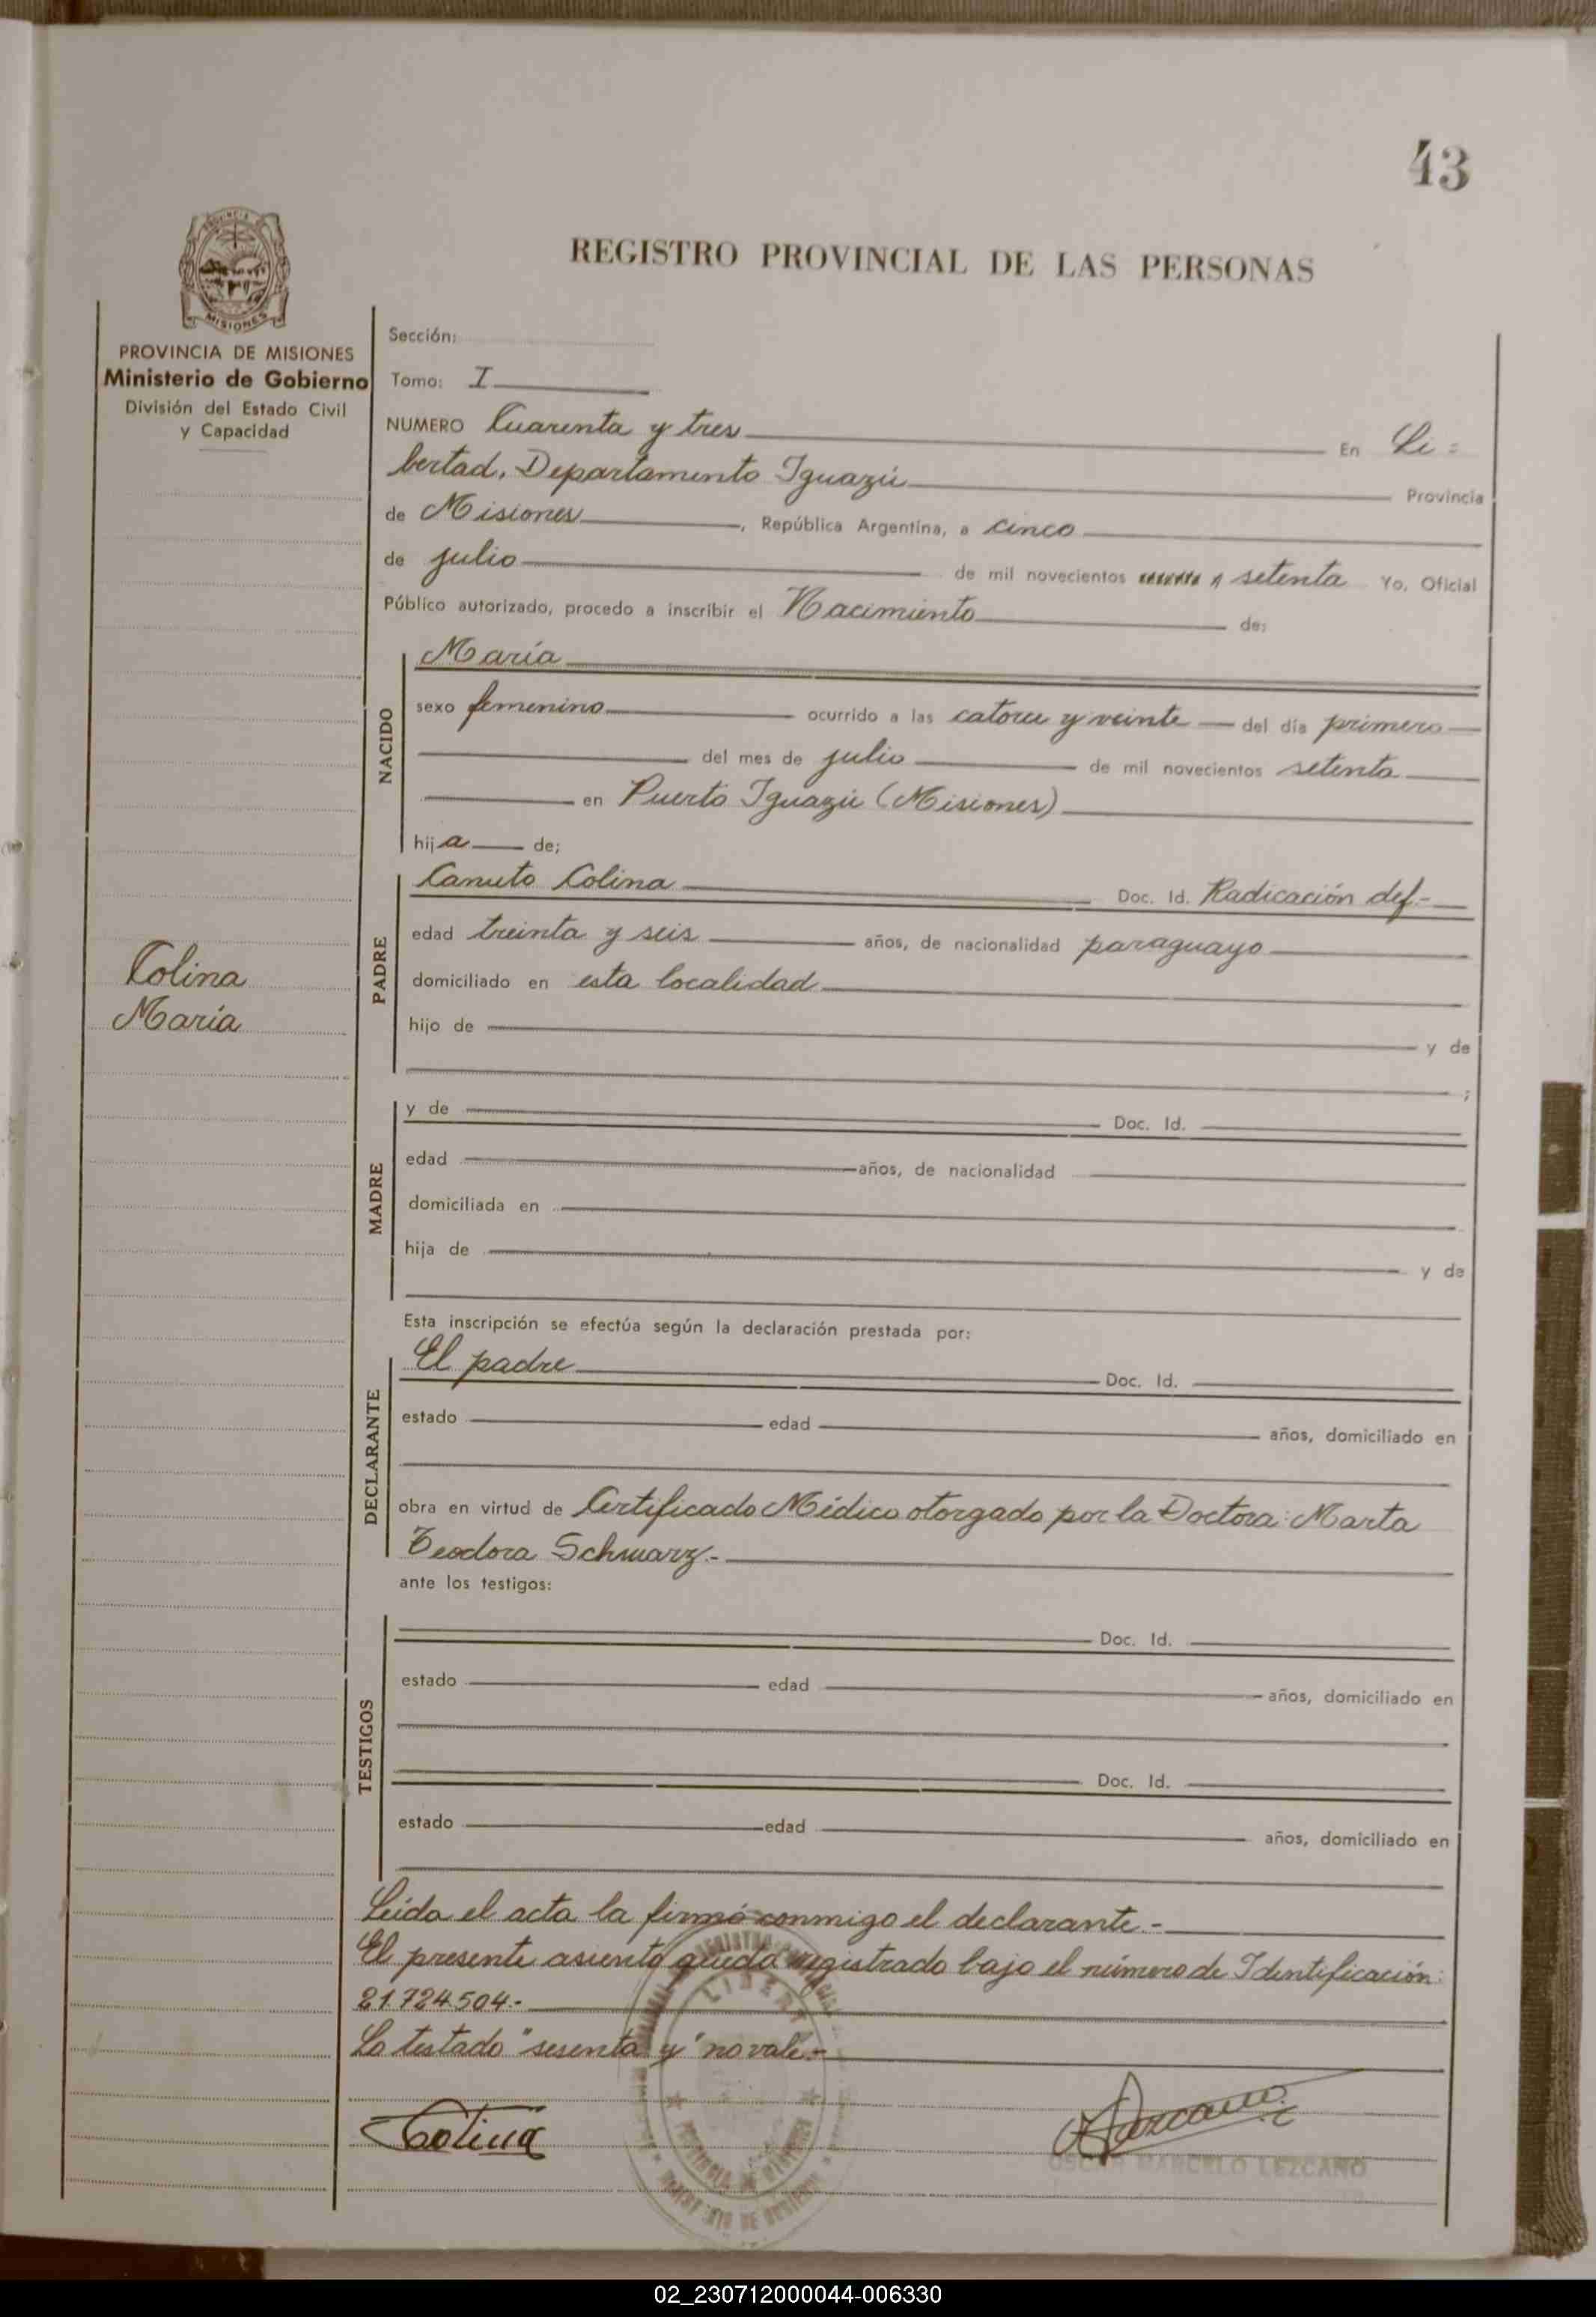 43
REGISTRO PROVINCIAL DE LAS PERSONAS
MISIONES
PROVINCIA DE MISIONES
Ministerio de Gobierno
División del Estado Civil
y Capacidad
Colina
María
Sección:
Tomo: I
NUMERO Cuarenta y tres En Li=
bertad, Departamento Iguazú Provincia
de Misiones, República Argentina, a cinco
de julio de mil novecientos sesenta y setenta Yo, Oficial
Público autorizado, procedo a inscribir el Nacimiento de:
NACIDO
María
sexo femenino ocurrido a las catorce y veinte del día primero
del mes de julio de mil novecientos setenta
en Puerto Iguazú (Misiones)
hija de;
PADRE
Canuto Colina Doc. Id. Radicación def.-
edad treinta y seis años, de nacionalidad paraguayo
domiciliado en esta localidad
hijo de y de
;
MADRE
y de Doc. Id.
edad años, de nacionalidad
domiciliada en
hija de y de
Esta inscripción se efectúa según la declaración prestada por:
DECLARANTE
El padre Doc. Id.
estado edad años, domiciliado en
obra en virtud de Certificado Médico otorgado por la Doctora: Marta
Teodora Schwarz.-
ante los testigos:
TESTIGOS
Doc. Id.
estado edad años, domiciliado en
Doc. Id.
estado edad años, domiciliado en
Leída el acta la firmó conmigo el declarante.-
El presente asiento queda registrado bajo el número de Identificación:
21.724.504.-
Lo testado "sesenta y" no vale.-
Colina
OSCAR MARCELO LEZCANO
02_230712000044-006330